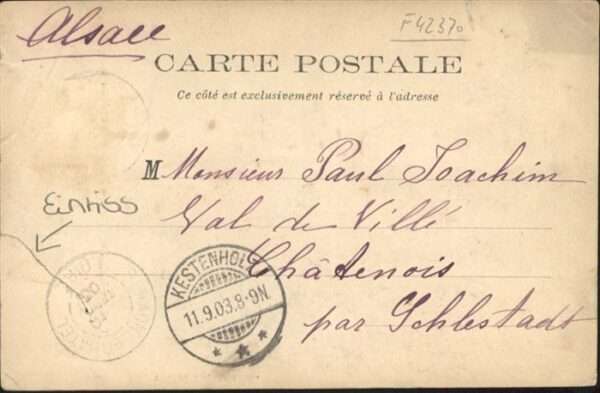 Alsace
F42370
CARTE POSTALE
Ce côté est exclusivement réservé à l'adresse
M Monsieur Paul Joachim
Einriss
Val de Villé
Châtenois
par Schlestadt
KESTENHOLZ
11.9.03.8-9N.